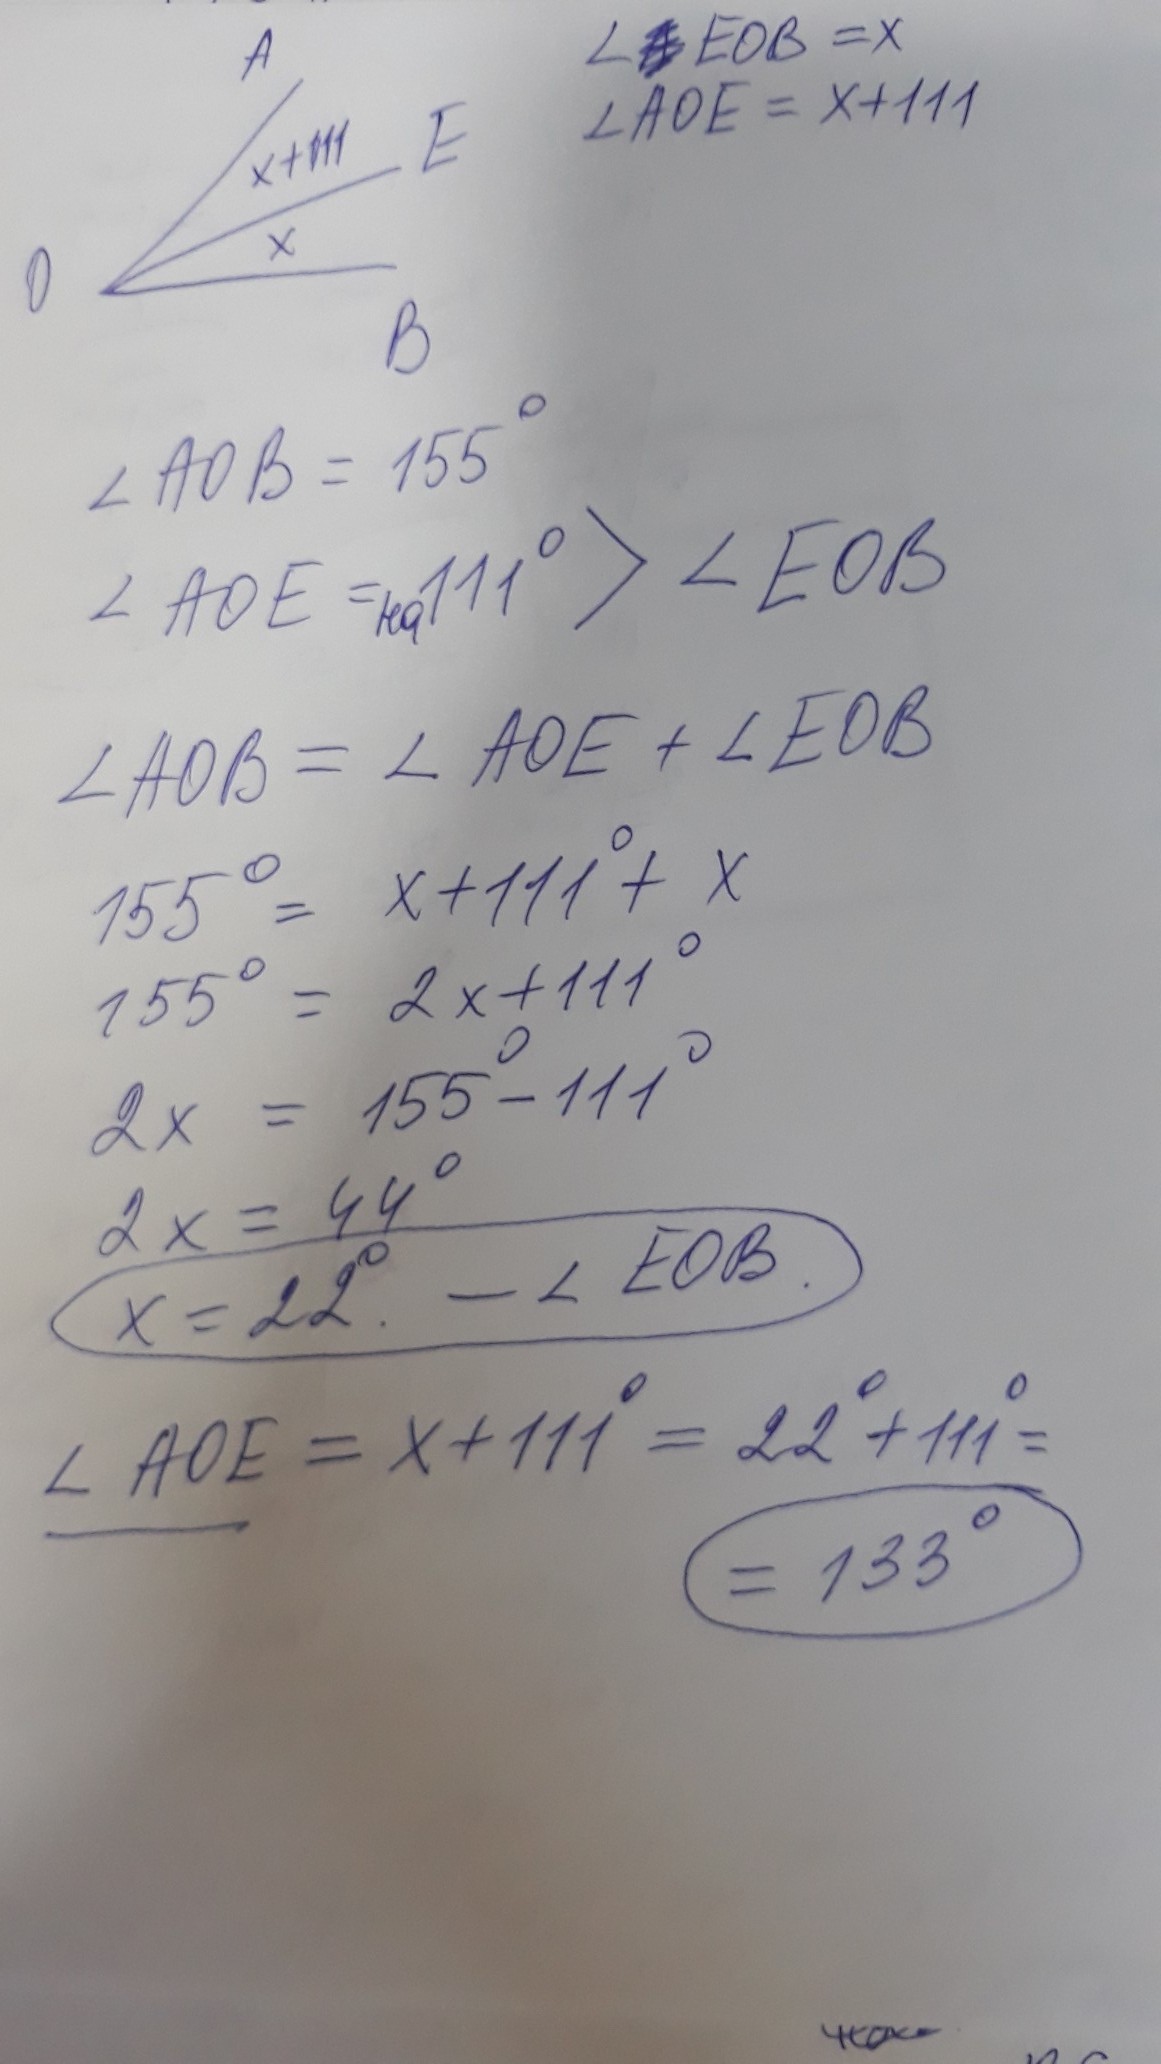 A
∠ EOB = x
x+111
E
∠AOE = x+111
x
O
B
∠AOB = 155°
∠AOE = на 111° > ∠EOB
∠AOB = ∠AOE + ∠EOB
155° = x+111° + x
155° = 2x+111°
2x = 155° - 111°
2x = 44°
x = 22°. — ∠ EOB.
∠ AOE = x+111° = 22° + 111° =
= 133°